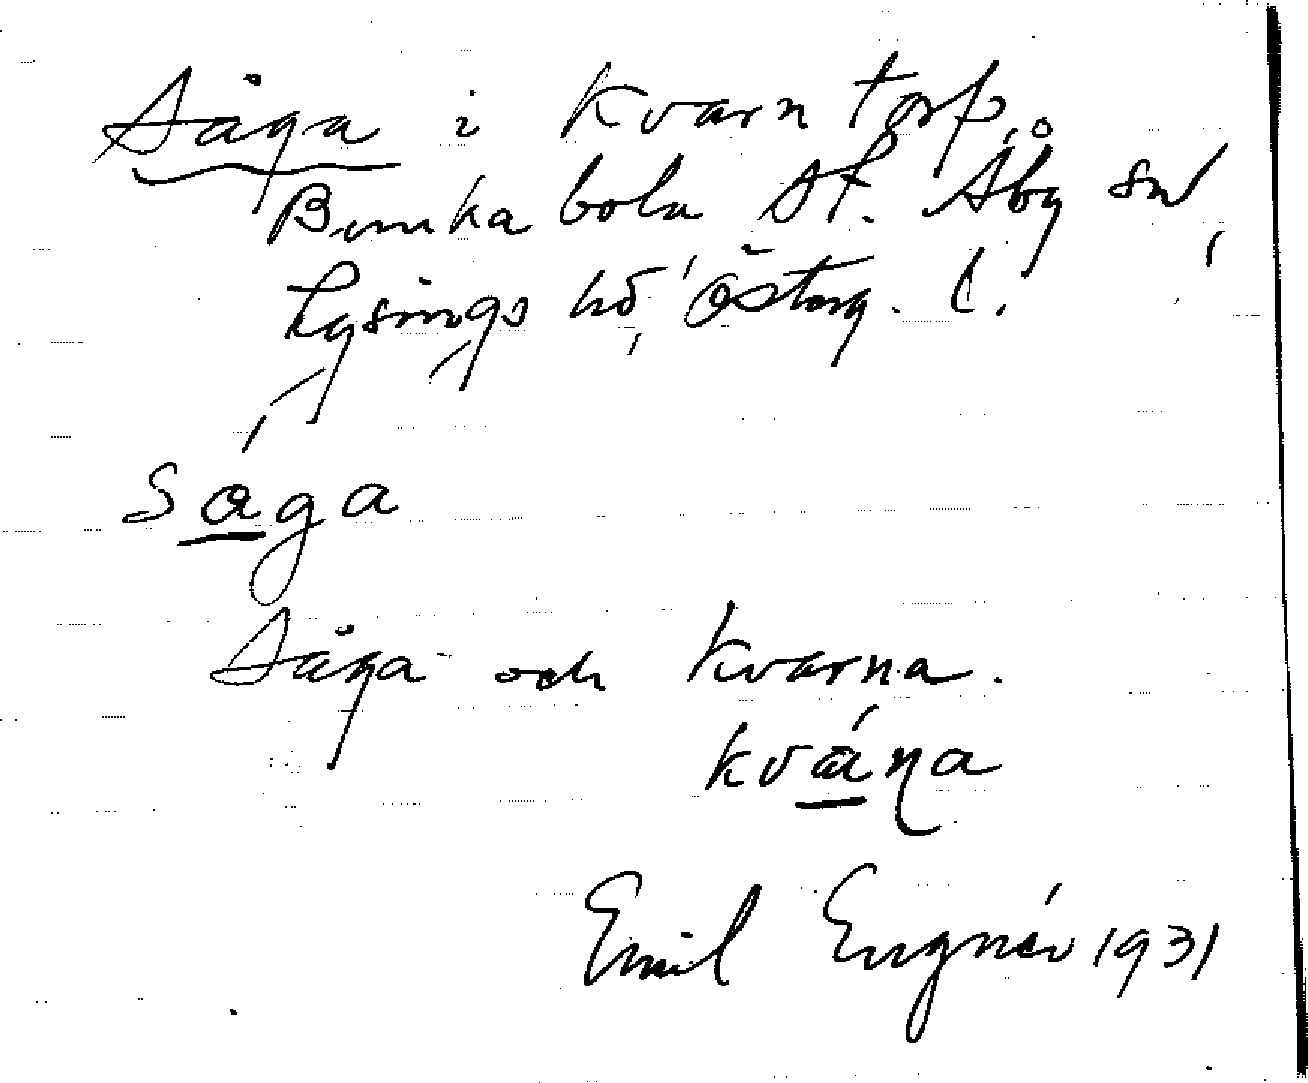 Såga i Kvarntorp,
Bunkabola St. Åby sn,
Lysings hd, Österg. l.
Sága
Såga och kvarna.
kváṇa
Emil Engnér 1931